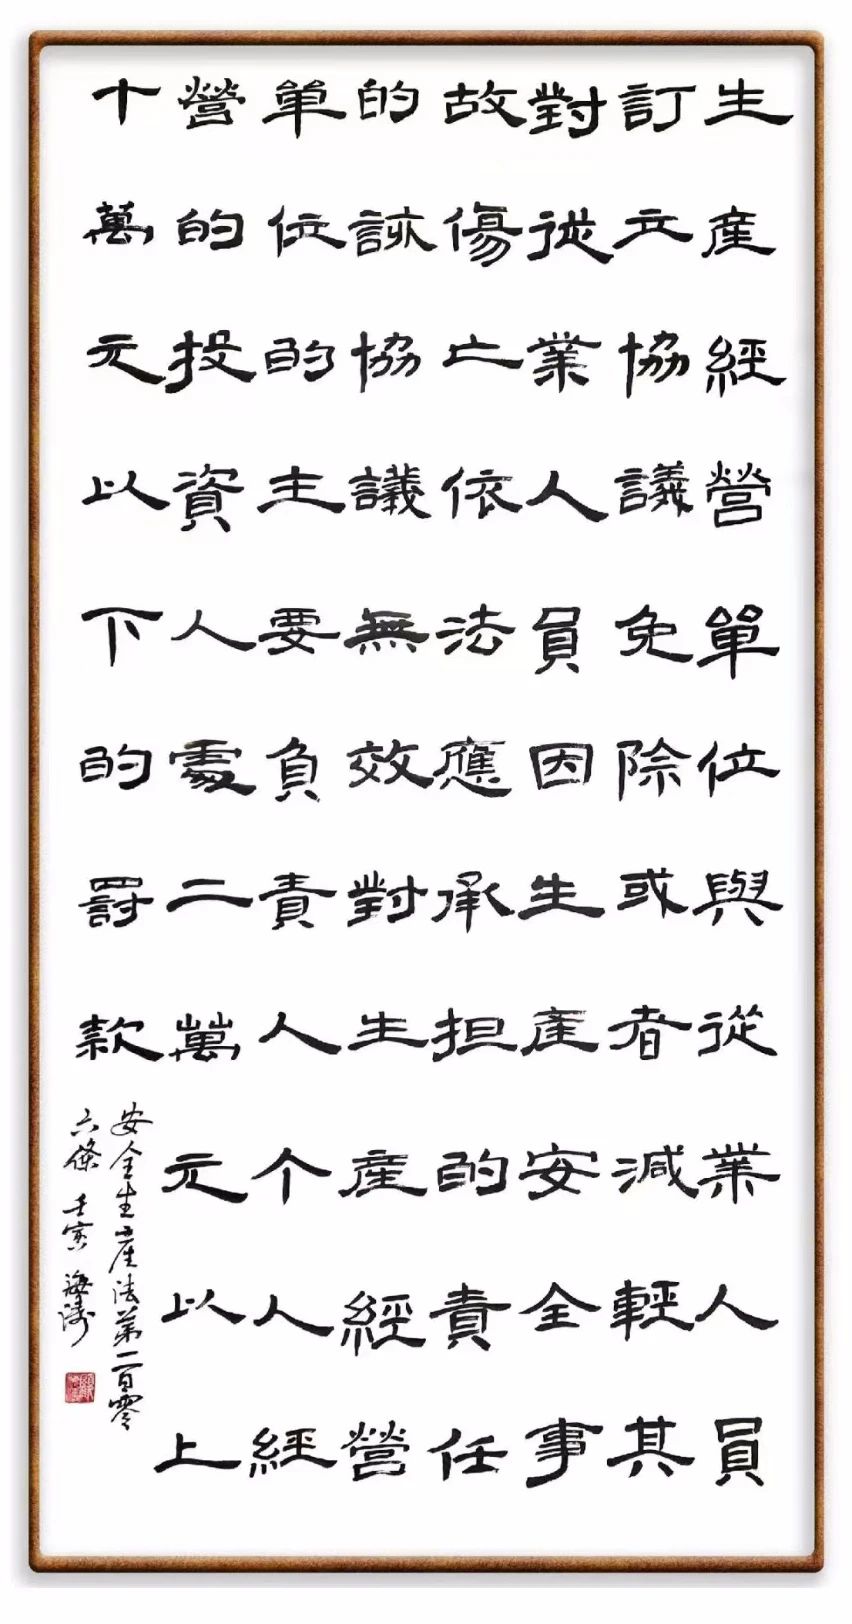 生產經營單位與從業人員
訂立協議免除或者減輕其
對從業人員因生產安全事
故傷亡依法應承担的責任
的該協議無效對生產經營
單位的主要負責人个人經
營的投資人處二萬元以上
十萬元以下的罰款
安全生產法第一百零
六條 壬寅 海濤